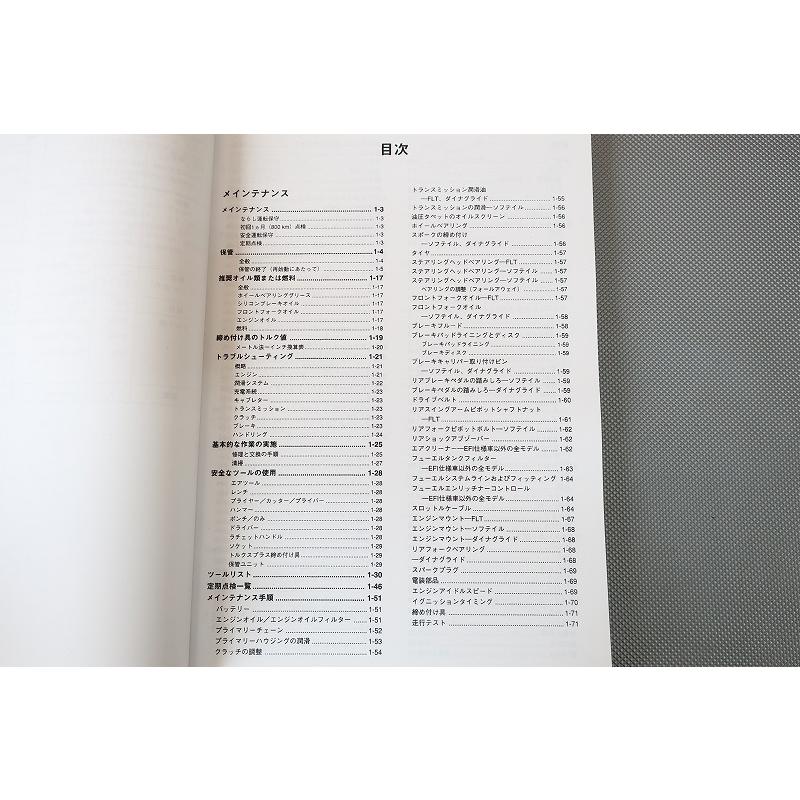 目次
メインテナンス
メインテナンス ........ 1-3
ならし運転保守 ........ 1-3
初回1ヵ月 (800 km) 点検 ........ 1-3
安全運転保守 ........ 1-3
定期点検 ........ 1-3
保管 ........ 1-4
全般 ........ 1-4
保管の終了 (再始動にあたって) ........ 1-5
推奨オイル類または燃料 ........ 1-17
全般 ........ 1-17
ホイールベアリンググリース ........ 1-17
シリコンブレーキオイル ........ 1-17
フロントフォークオイル ........ 1-17
エンジンオイル ........ 1-17
燃料 ........ 1-18
締め付け具のトルク値 ........ 1-19
メートル法―インチ換算表 ........ 1-20
トラブルシューティング ........ 1-21
概略 ........ 1-21
エンジン ........ 1-21
潤滑システム ........ 1-22
充電系統 ........ 1-23
キャブレター ........ 1-23
トランスミッション ........ 1-23
クラッチ ........ 1-23
ブレーキ ........ 1-23
ハンドリング ........ 1-24
基本的な作業の実施 ........ 1-25
修理と交換の手順 ........ 1-25
清掃 ........ 1-27
安全なツールの使用 ........ 1-28
エアツール ........ 1-28
レンチ ........ 1-28
プライヤー/カッター/プライバー ........ 1-28
ハンマー ........ 1-28
ポンチ/のみ ........ 1-28
ドライバー ........ 1-28
ラチェットハンドル ........ 1-28
ソケット ........ 1-29
トルクスプラス締め付け具 ........ 1-29
保管ユニット ........ 1-29
ツールリスト ........ 1-30
定期点検一覧 ........ 1-46
メインテナンス手順 ........ 1-51
バッテリー ........ 1-51
エンジンオイル/エンジンオイルフィルター ........ 1-51
プライマリーチェーン ........ 1-52
プライマリーハウジングの潤滑 ........ 1-53
クラッチの調整 ........ 1-54
トランスミッション潤滑油
―FLT、ダイナグライド ........ 1-55
トランスミッションの潤滑―ソフテイル ........ 1-56
油圧タペットのオイルスクリーン ........ 1-56
ホイールベアリング ........ 1-56
スポークの締め付け
―ソフテイル、ダイナグライド ........ 1-56
タイヤ ........ 1-57
ステアリングヘッドベアリング―FLT ........ 1-57
ステアリングヘッドベアリング―ソフテイル ........ 1-57
ステアリングヘッドベアリング―ソフテイル ........ 1-57
ベアリングの調整 (フォールアウェイ) ........ 1-57
フロントフォークオイル―FLT ........ 1-57
フロントフォークオイル
―ソフテイル、ダイナグライド ........ 1-58
ブレーキフルード ........ 1-58
ブレーキパッドライニングとディスク ........ 1-59
ブレーキパッドライニング ........ 1-59
ブレーキディスク ........ 1-59
ブレーキキャリパー取り付けピン
―ソフテイル、ダイナグライド ........ 1-59
リアブレーキペダルの踏みしろ―ソフテイル ........ 1-59
ブレーキペダルの踏みしろ―ダイナグライド ........ 1-59
ドライブベルト ........ 1-60
リアスイングアームピボットシャフトナット
―FLT ........ 1-61
リアフォークピボットボルト―ソフテイル ........ 1-62
リアショックアブソーバー ........ 1-62
エアクリーナー―EFI仕様車以外の全モデル ........ 1-62
フューエルタンクフィルター
―EFI仕様車以外の全モデル ........ 1-63
フューエルシステムラインおよびフィッティング ........ 1-64
フューエルエンリッチナーコントロール
―EFI仕様車以外の全モデル ........ 1-64
スロットルケーブル ........ 1-64
エンジンマウント―FLT ........ 1-67
エンジンマウント―ソフテイル ........ 1-68
エンジンマウント―ダイナグライド ........ 1-68
リアフォークベアリング ........ 1-68
―ダイナグライド ........ 1-68
スパークプラグ ........ 1-69
電装部品 ........ 1-69
エンジンアイドルスピード ........ 1-69
イグニッションタイミング ........ 1-70
締め付け具 ........ 1-71
走行テスト ........ 1-71